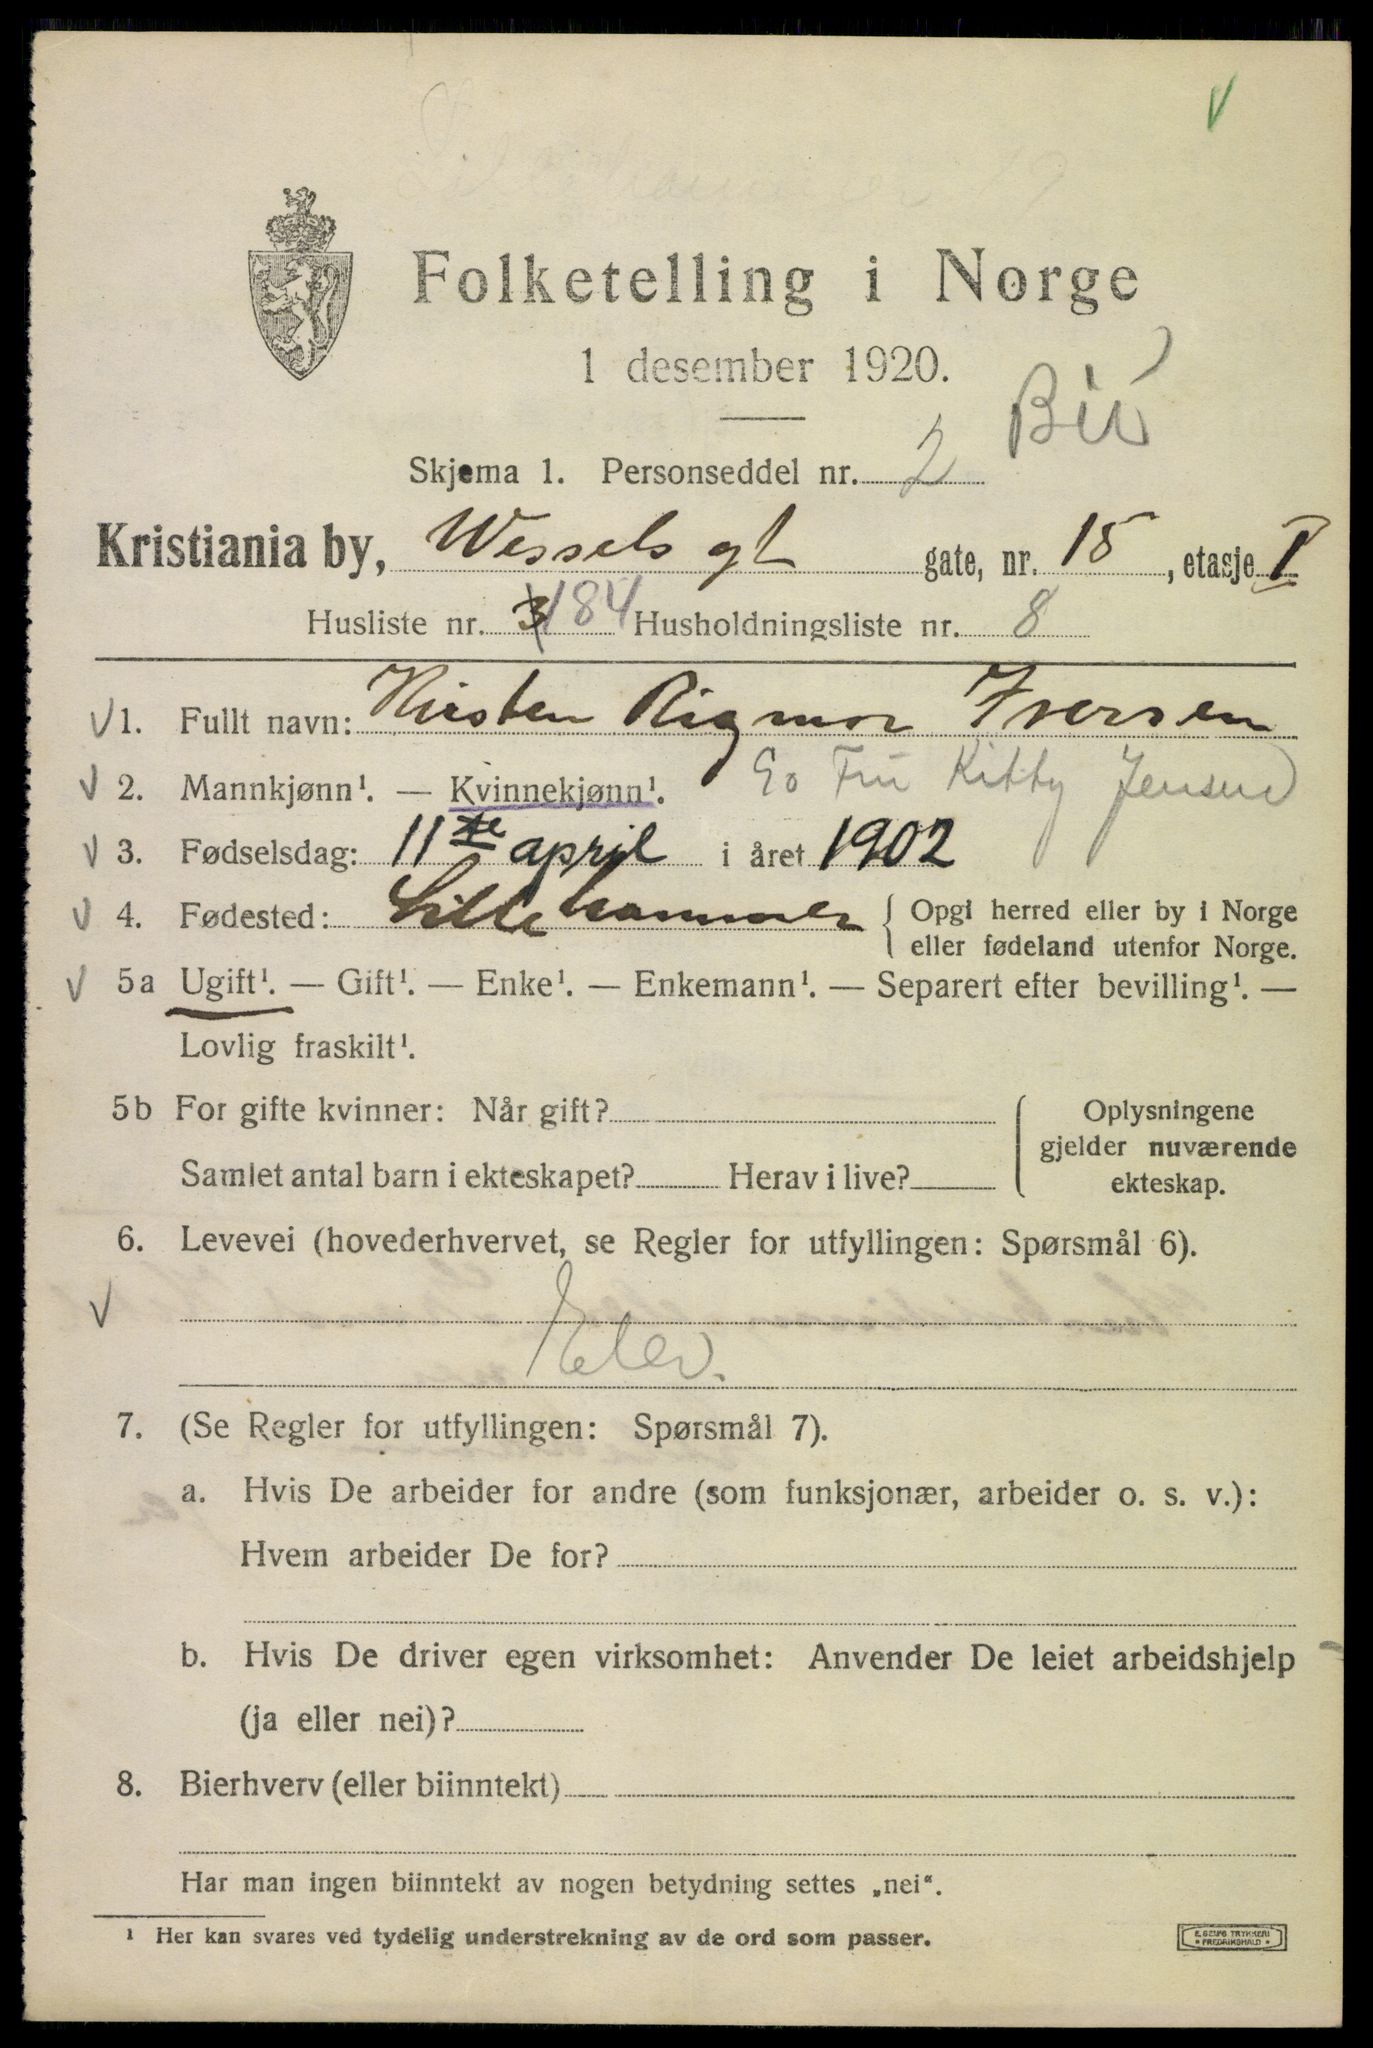 Folketelling i Norge
1 desember 1920.
Skjema 1. Personseddel nr. 2
Kristiania by, Wessels gt gate, nr. 15, etasje I
Husliste nr. 3 184 Husholdningsliste nr. 8
1. Fullt navn: Kirsten Rigmor Iversen
2. Mannkjønn¹. — Kvinnekjønn¹. Fru Kitty Jensen
3. Fødselsdag: 11te april i året 1902
4. Fødested: Lillehammer { Opgi herred eller by i Norge
eller fødeland utenfor Norge.
5a Ugift¹. — Gift¹. — Enke¹. — Enkemann¹. — Separert efter bevilling¹. —
Lovlig fraskilt¹.
5b For gifte kvinner: Når gift? Oplysningene
gjelder nuværende
Samlet antal barn i ekteskapet? Herav i live? ekteskap.
6. Levevei (hovederhvervet, se Regler for utfyllingen: Spørsmål 6).
Elev.
7. (Se Regler for utfyllingen: Spørsmål 7).
a. Hvis De arbeider for andre (som funksjonær, arbeider o. s. v.):
Hvem arbeider De for?
b. Hvis De driver egen virksomhet: Anvender De leiet arbeidshjelp
(ja eller nei)?
8. Bierhverv (eller biinntekt)
Har man ingen biinntekt av nogen betydning settes „nei“.
¹ Her kan svares ved tydelig understrekning av de ord som passer.
E. SEMS TRYKKERI
* FREDRIKSHALD *